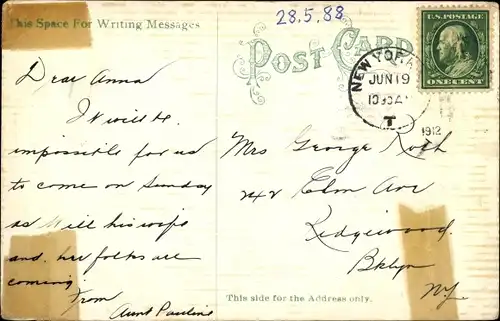 28.5.88
This Space For Writing Messages
POST CARD
U.S. POSTAGE
ONE CENT
NEW YORK
JUN 19
1030A
T
1912
Dear Anna
It will be
impossible for us
to come on Sunday
as Will his wife
and her folks are
coming
From
Aunt Pauline
Mrs George Roth
242 Elm Ave
Ridgewood
Bklyn
N.Y.
This side for the Address only.